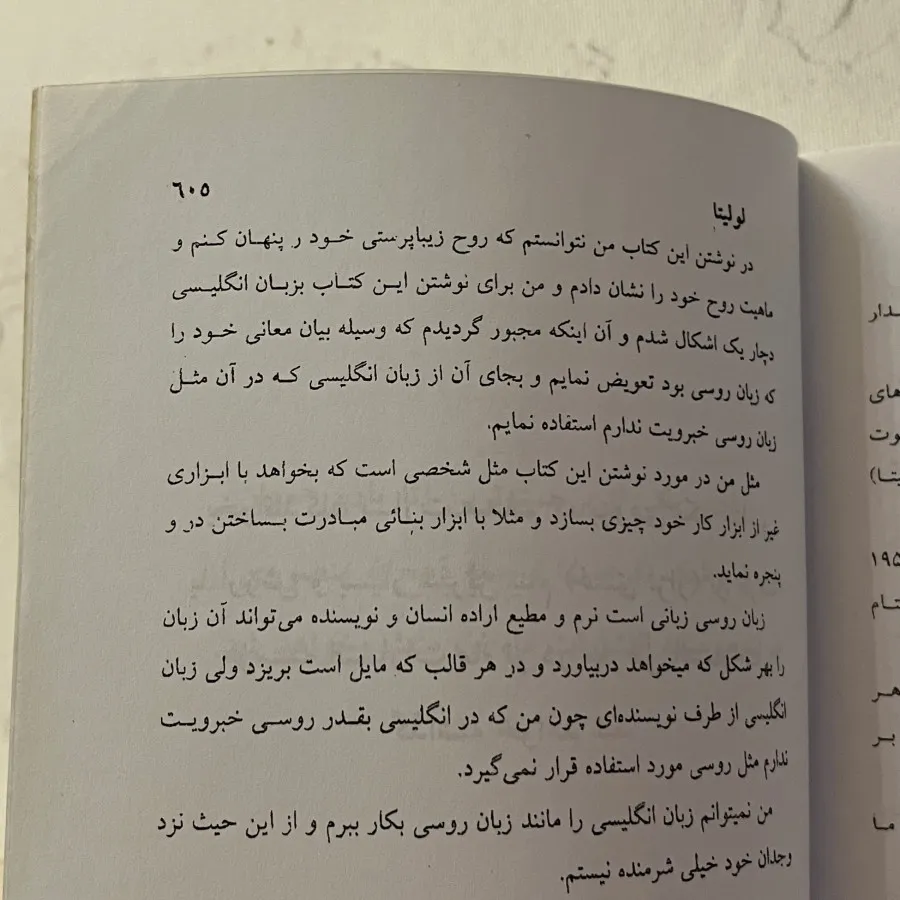 ۶۰۵
لولیتا
در نوشتن این کتاب من نتوانستم که روح زیباپرستی خود ر پنهان کنم و
ماهیت روح خود را نشان دادم و من برای نوشتن این کتاب بزبان انگلیسی
دچار یک اشکال شدم و آن اینکه مجبور گردیدم که وسیله بیان معانی خود را
که زبان روسی بود تعویض نمایم و بجای آن از زبان انگلیسی که در آن مثل
زبان روسی خبرویت ندارم استفاده نمایم.
مثل من در مورد نوشتن این کتاب مثل شخصی است که بخواهد با ابزاری
غیر از ابزار کار خود چیزی بسازد و مثلا با ابزار بنائی مبادرت بساختن در و
پنجره نماید.
زبان روسی زبانی است نرم و مطیع اراده انسان و نویسنده می‌تواند آن زبان
را بهر شکل که میخواهد دربیاورد و در هر قالب که مایل است بریزد ولی زبان
انگلیسی از طرف نویسنده‌ای چون من که در انگلیسی بقدر روسی خبرویت
ندارم مثل روسی مورد استفاده قرار نمی‌گیرد.
من نمیتوانم زبان انگلیسی را مانند زبان روسی بکار ببرم و از این حیث نزد
وجدان خود خیلی شرمنده نیستم.